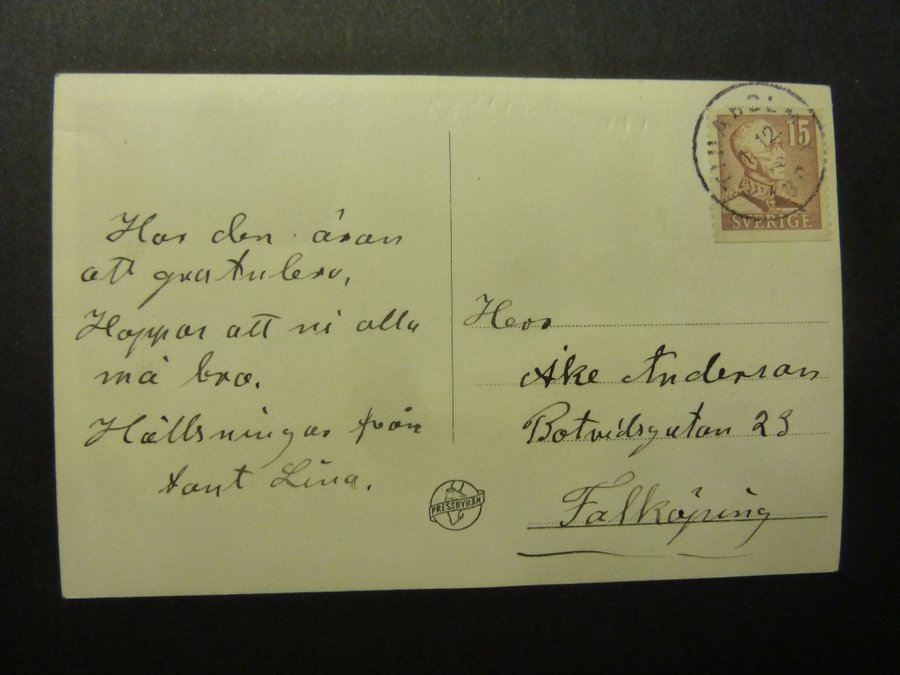 Har den äran
att gratulera,
Hoppas att ni alla
må bra.
Hällsningar från
tant Lina.
PRESSBYRÅN
15
12
SVERIGE
Herr
Åke Anderson
Botvidsgatan 23
Falköping